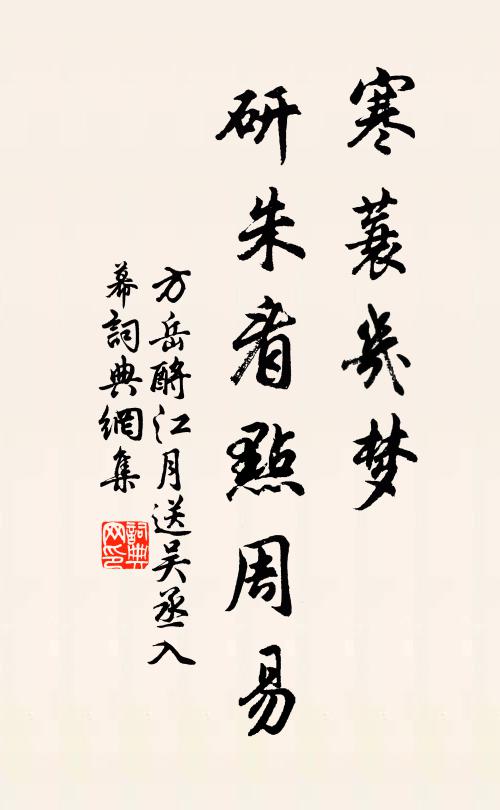 寒蓑几梦
研朱看點周易
方岳酹江月送吴丞入
幕詞典網集
詞典网印